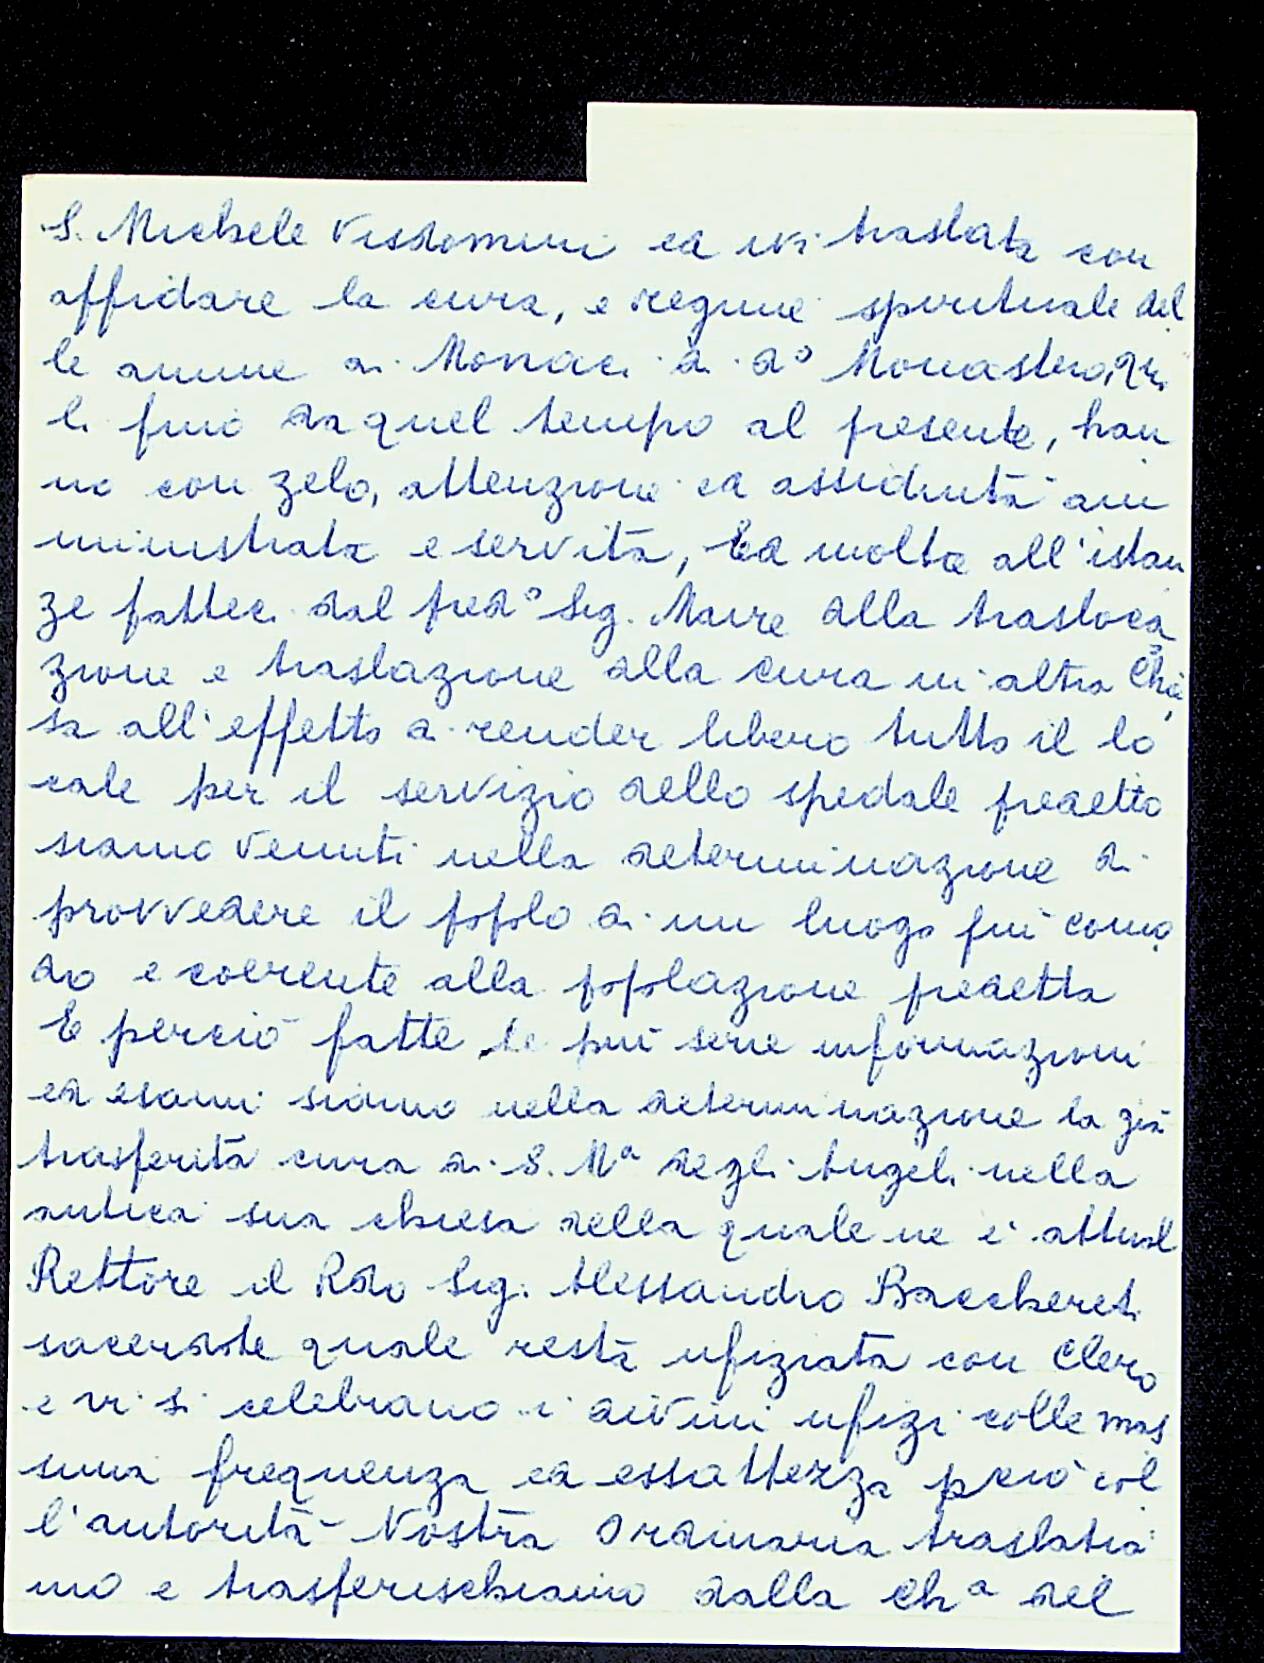 S. Michele Visdomini ed ivi traslata con
affidare la cura, e regime spirituale del
le anime ai Monaci di dº Monastero, qua
li fino da quel tempo al presente, han
no con zelo, attenzione ed assiduità am
ministrata e servita, Ed molto all'istan
ze fatteci dal predº Sig. Maire alla trasloca
zione e traslazione alla cura in altra Chie
sa all'effetto di render libero tutto il lo
cale per il servizio dello spedale predetto
siamo venuti nella determinazione di
provvedere il popolo di un luogo più como
do e coerente alla popolazione predetta
E perciò fatte le più serie informazioni
ed esami siamo nella determinazione la già
trasferita cura di S. Mª degli Angeli nella
antica sua chiesa della quale ne è attual
Rettore il Rdo Sig. Alessandro Bacchereti
sacerdote quale resta ufiziata con Clero
e vi si celebrano i divini ufizi colle mas
sima frequenza ed essattezza perciò col
l'autorità Nostra Ordinaria traslatia
mo e trasferischiamo dalla Chª del